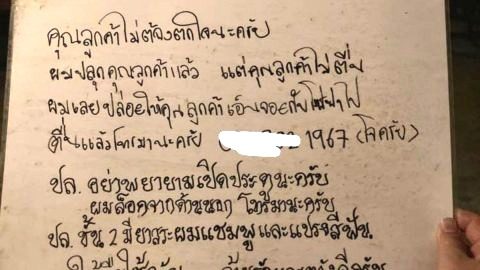 คุณลูกค้าไม่ต้องตกใจนะครับ
ผมปลุกคุณลูกค้าแล้ว แต่คุณลูกค้าไม่ตื่น
ผมเลยปล่อยให้คุณลูกค้าเอ็นจอยกับโซฟาไป
ตื่นแล้วโทรมานะครับ 1967 (โจครับ)
ปล. อย่าพยายามเปิดประตูนะครับ
ผมล็อคจากด้านนอก โทรมานะครับ
ปล. ชั้น 2 มียาสระผมแชมพูและแปรงสีฟัน